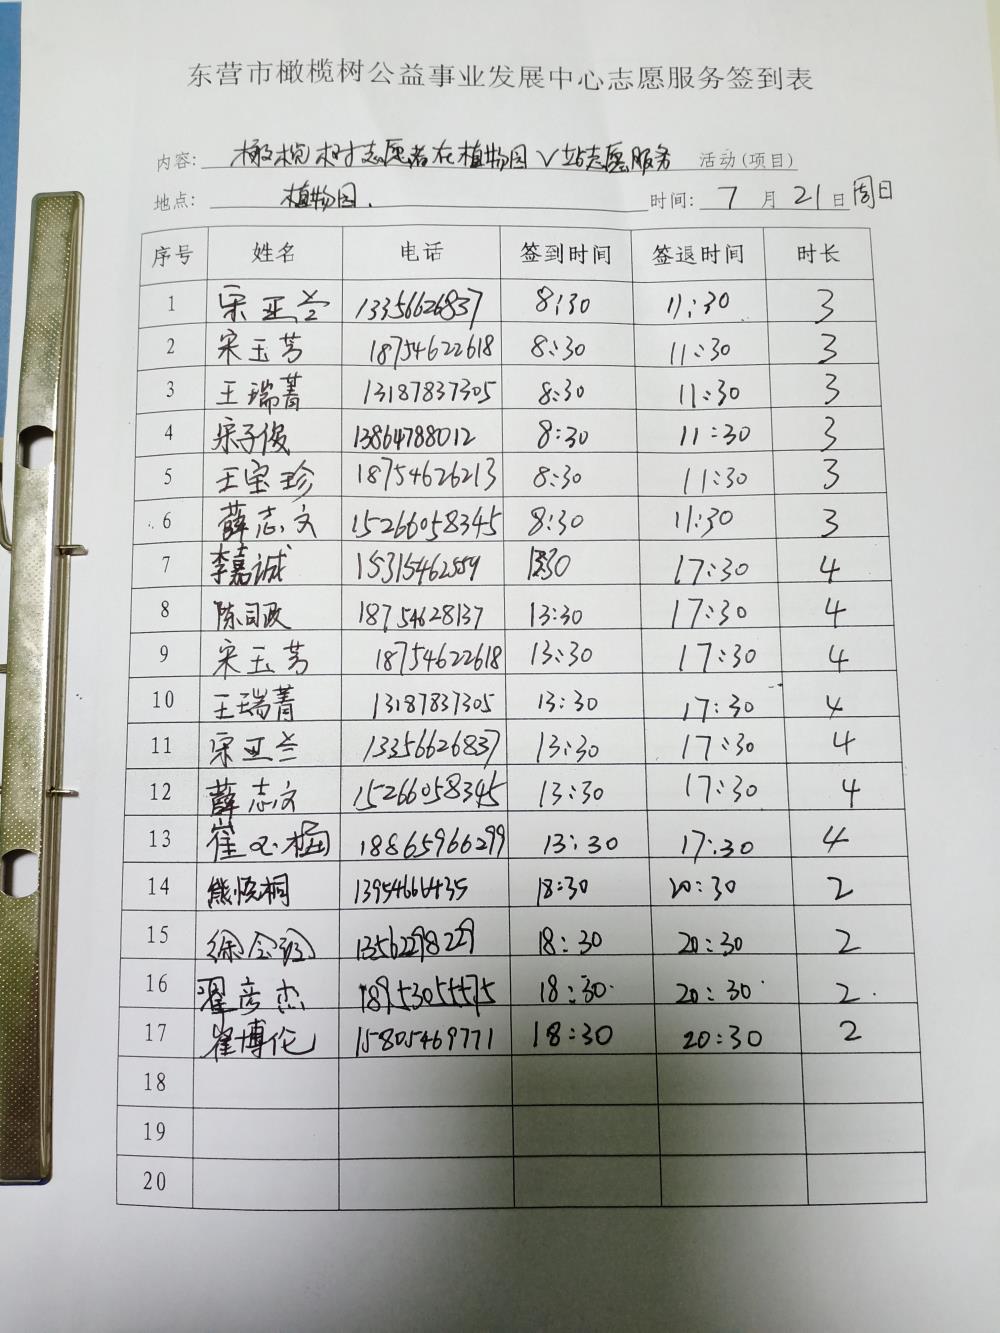 东营市橄榄树公益事业发展中心志愿服务签到表
内容: 橄榄树志愿者在植物园V站志愿服务 活动(项目)
地点: 植物园. 时间: 7月21日周日
序号 姓名 电话 签到时间 签退时间 时长
1 宋亚兰 13356626837 8:30 11:30 3
2 宋玉芳 18754622618 8:30 11:30 3
3 王瑞菁 13187837305 8:30 11:30 3
4 宋子俊 13864788012 8:30 11:30 3
5 王宝珍 18754626213 8:30 11:30 3
6 薛志文 15266058345 8:30 11:30 3
7 李嘉诚 15315462559 13:30 17:30 4
8 陈司政 18754628137 13:30 17:30 4
9 宋玉芳 18754622618 13:30 17:30 4
10 王瑞菁 13187837305 13:30 17:30 4
11 宋亚兰 13356626837 13:30 17:30 4
12 薛志文 15266058345 13:30 17:30 4
13 崔 18865966299 13:30 17:30 4
14 熊悟桐 13954666435 18:30 20:30 2
15 徐 13562298229 18:30 20:30 2
16 翟彦杰 18953055575 18:30 20:30 2
17 崔博伦 15805469771 18:30 20:30 2
18
19
20